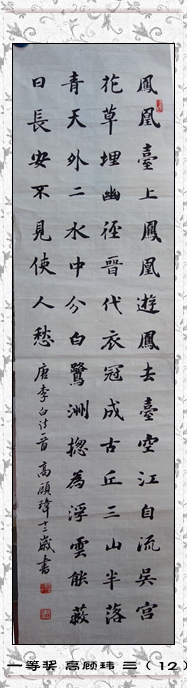 鳳凰臺上鳳凰遊鳳去臺空江自流吳宮
花草埋幽徑晉代衣冠成古丘三山半落
青天外二水中分白鷺洲揔為浮雲能蔽
日長安不見使人愁 唐李白詩首 高顧瑋 書
一等奖 高顾玮 三（12）